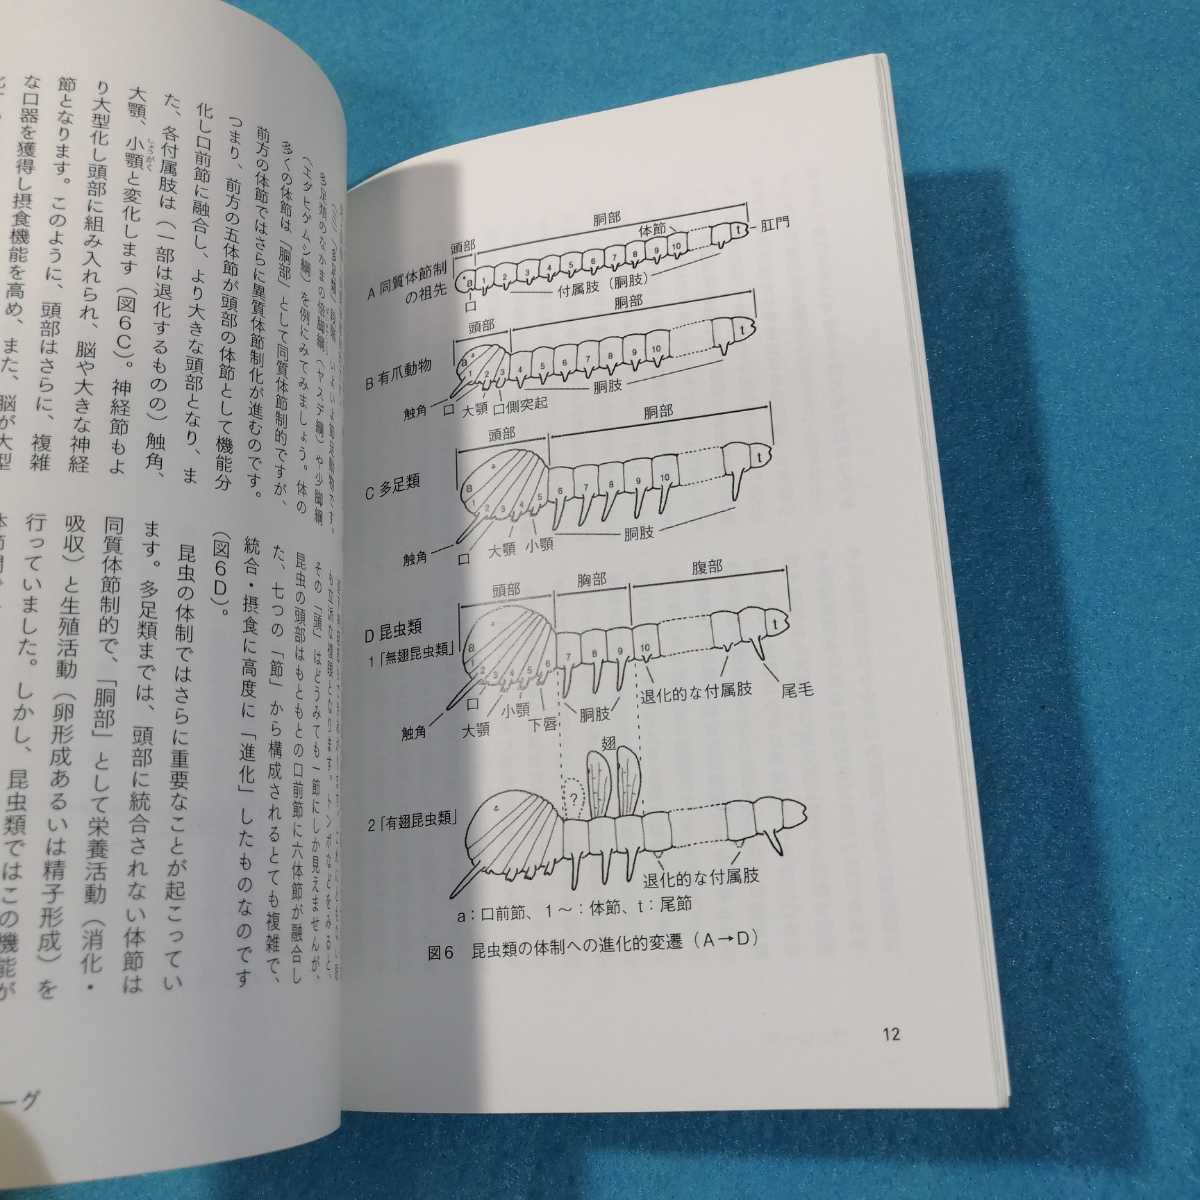 多くの体節は「胴部」として同質体節制的ですが、
前方の体節ではさらに異質体節制化が進むのです。
つまり、前方の五体節が頭部の体節として機能分
化し口前節に融合し、より大きな頭部となり、ま
た、各付属肢は（一部は退化するものの）触角、
大顎、小顎と変化します（図6C）。神経節もよ
しょうがく
り大型化し頭部に組み入れられ、脳や大きな神経
節となります。このように、頭部はさらに、複雑
な口器を獲得し摂食機能を高め、また、脳が大型
その「頭」はどうみても一節にしか見えませんが、
昆虫の頭部はもともとの口前節に六体節が融合し
た、七つの「節」から構成されるとても複雑で、
統合・摂食に高度に「進化」したものなのです
（図6D）。
昆虫の体制ではさらに重要なことが起こってい
ます。多足類までは、頭部に統合されない体節は
同質体節制的で、「胴部」として栄養活動（消化・
吸収）と生殖活動（卵形成あるいは精子形成）を
行っていました。しかし、昆虫類ではこの機能が
ーグ
頭部
胴部
体節
肛門
A 同質体節制
の祖先
a 1 2 3 4 5 6 7 8 9 10 t
口
付属肢（胴肢）
頭部
胴部
B 有爪動物
a 1 2 3 4 5 6 7 8 9 10 t
触角
口
大顎
口側突起
胴肢
頭部
胴部
C 多足類
a 1 2 3 4 5 6 7 8 9 10 t
触角
口
大顎
小顎
胴肢
頭部
胸部
腹部
D 昆虫類
1「無翅昆虫類」
a 1 2 3 4 5 6 7 8 9 10 t
触角
口
大顎
小顎
下唇
胴肢
退化的な付属肢
尾毛
翅
?
2「有翅昆虫類」
退化的な付属肢
a：口前節、1～：体節、t：尾節
図6 昆虫類の体制への進化的変遷（A→D）
12